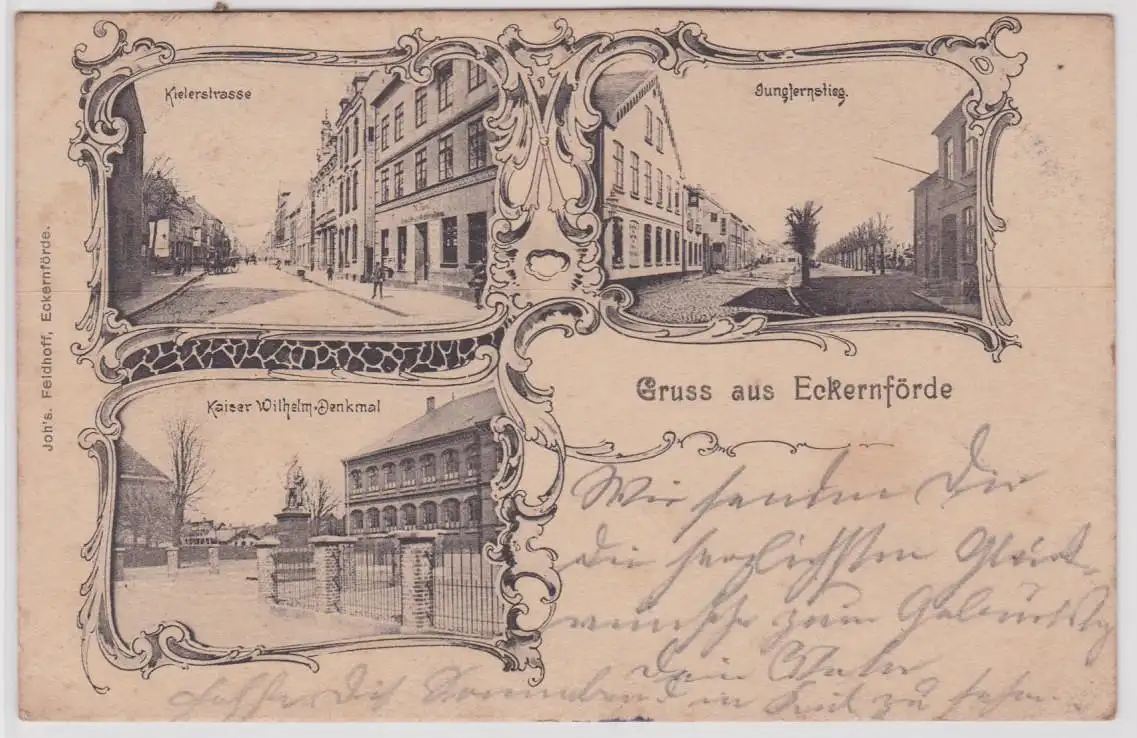 Kielerstrasse
Jungfernstieg.
Joh's. Feldhoff, Eckernförde.
Kaiser Wilhelm-Denkmal
Gruss aus Eckernförde
Wir senden Dir
die herzlichsten Glück-
wünsche zum Geburtstg
Dein Vater
hoffe Dich Sonnabend in Kiel zu sehen.